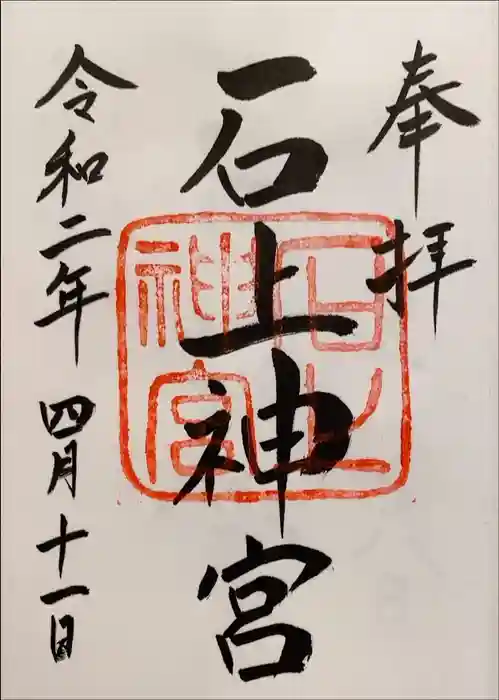 奉拝
石上神宮
石上神宮
令和二年 四月十一日